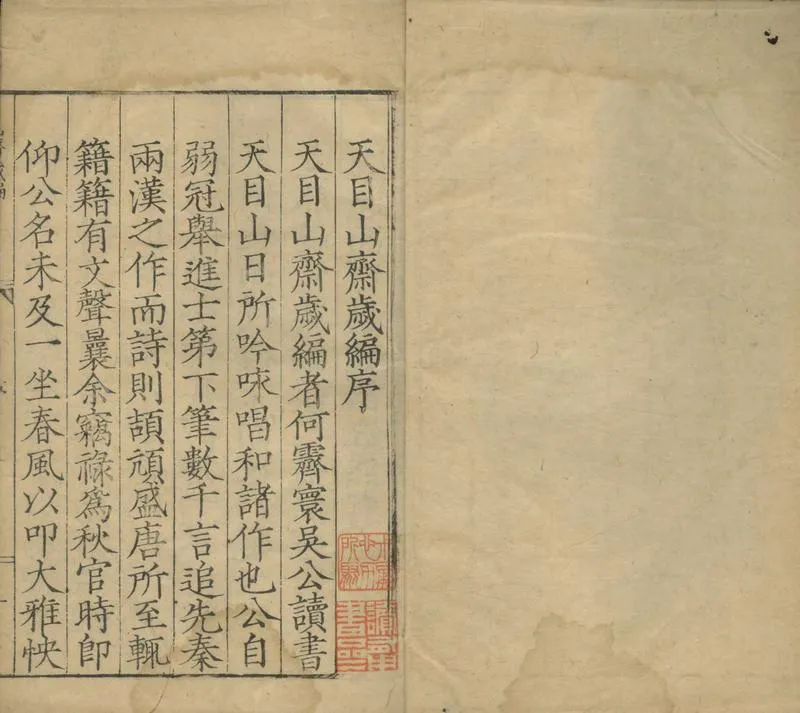 天目山齋歲編序
天目山齋歲編者何霽寰吳公讀書
天目山日所吟咏唱和諸作也公自
弱冠舉進士第下筆數千言追先秦
兩漢之作而詩則頡頏盛唐所至輒
籍籍有文聲曩余竊祿為秋官時即
仰公名未及一坐春風以叩大雅怏